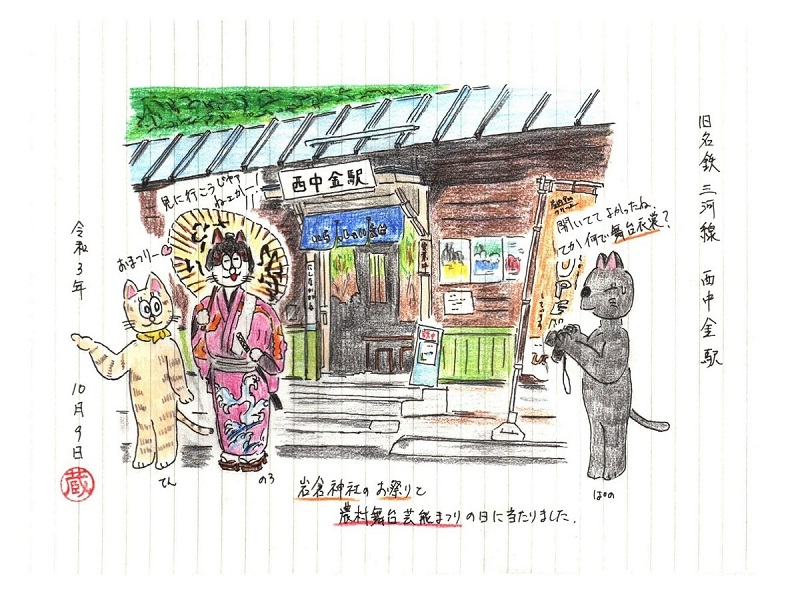 旧名鉄三河線 西中金駅
西中金駅
見に行こうじゃ
ねーかー!
おまつりー
開いててよかったね
てか何で舞台衣裳?
OPE
令和3年 10月9日
蔵
てん
のろ
ぱの
岩倉神社のお祭りと
農村舞台芸能まつりの日に当たりました。